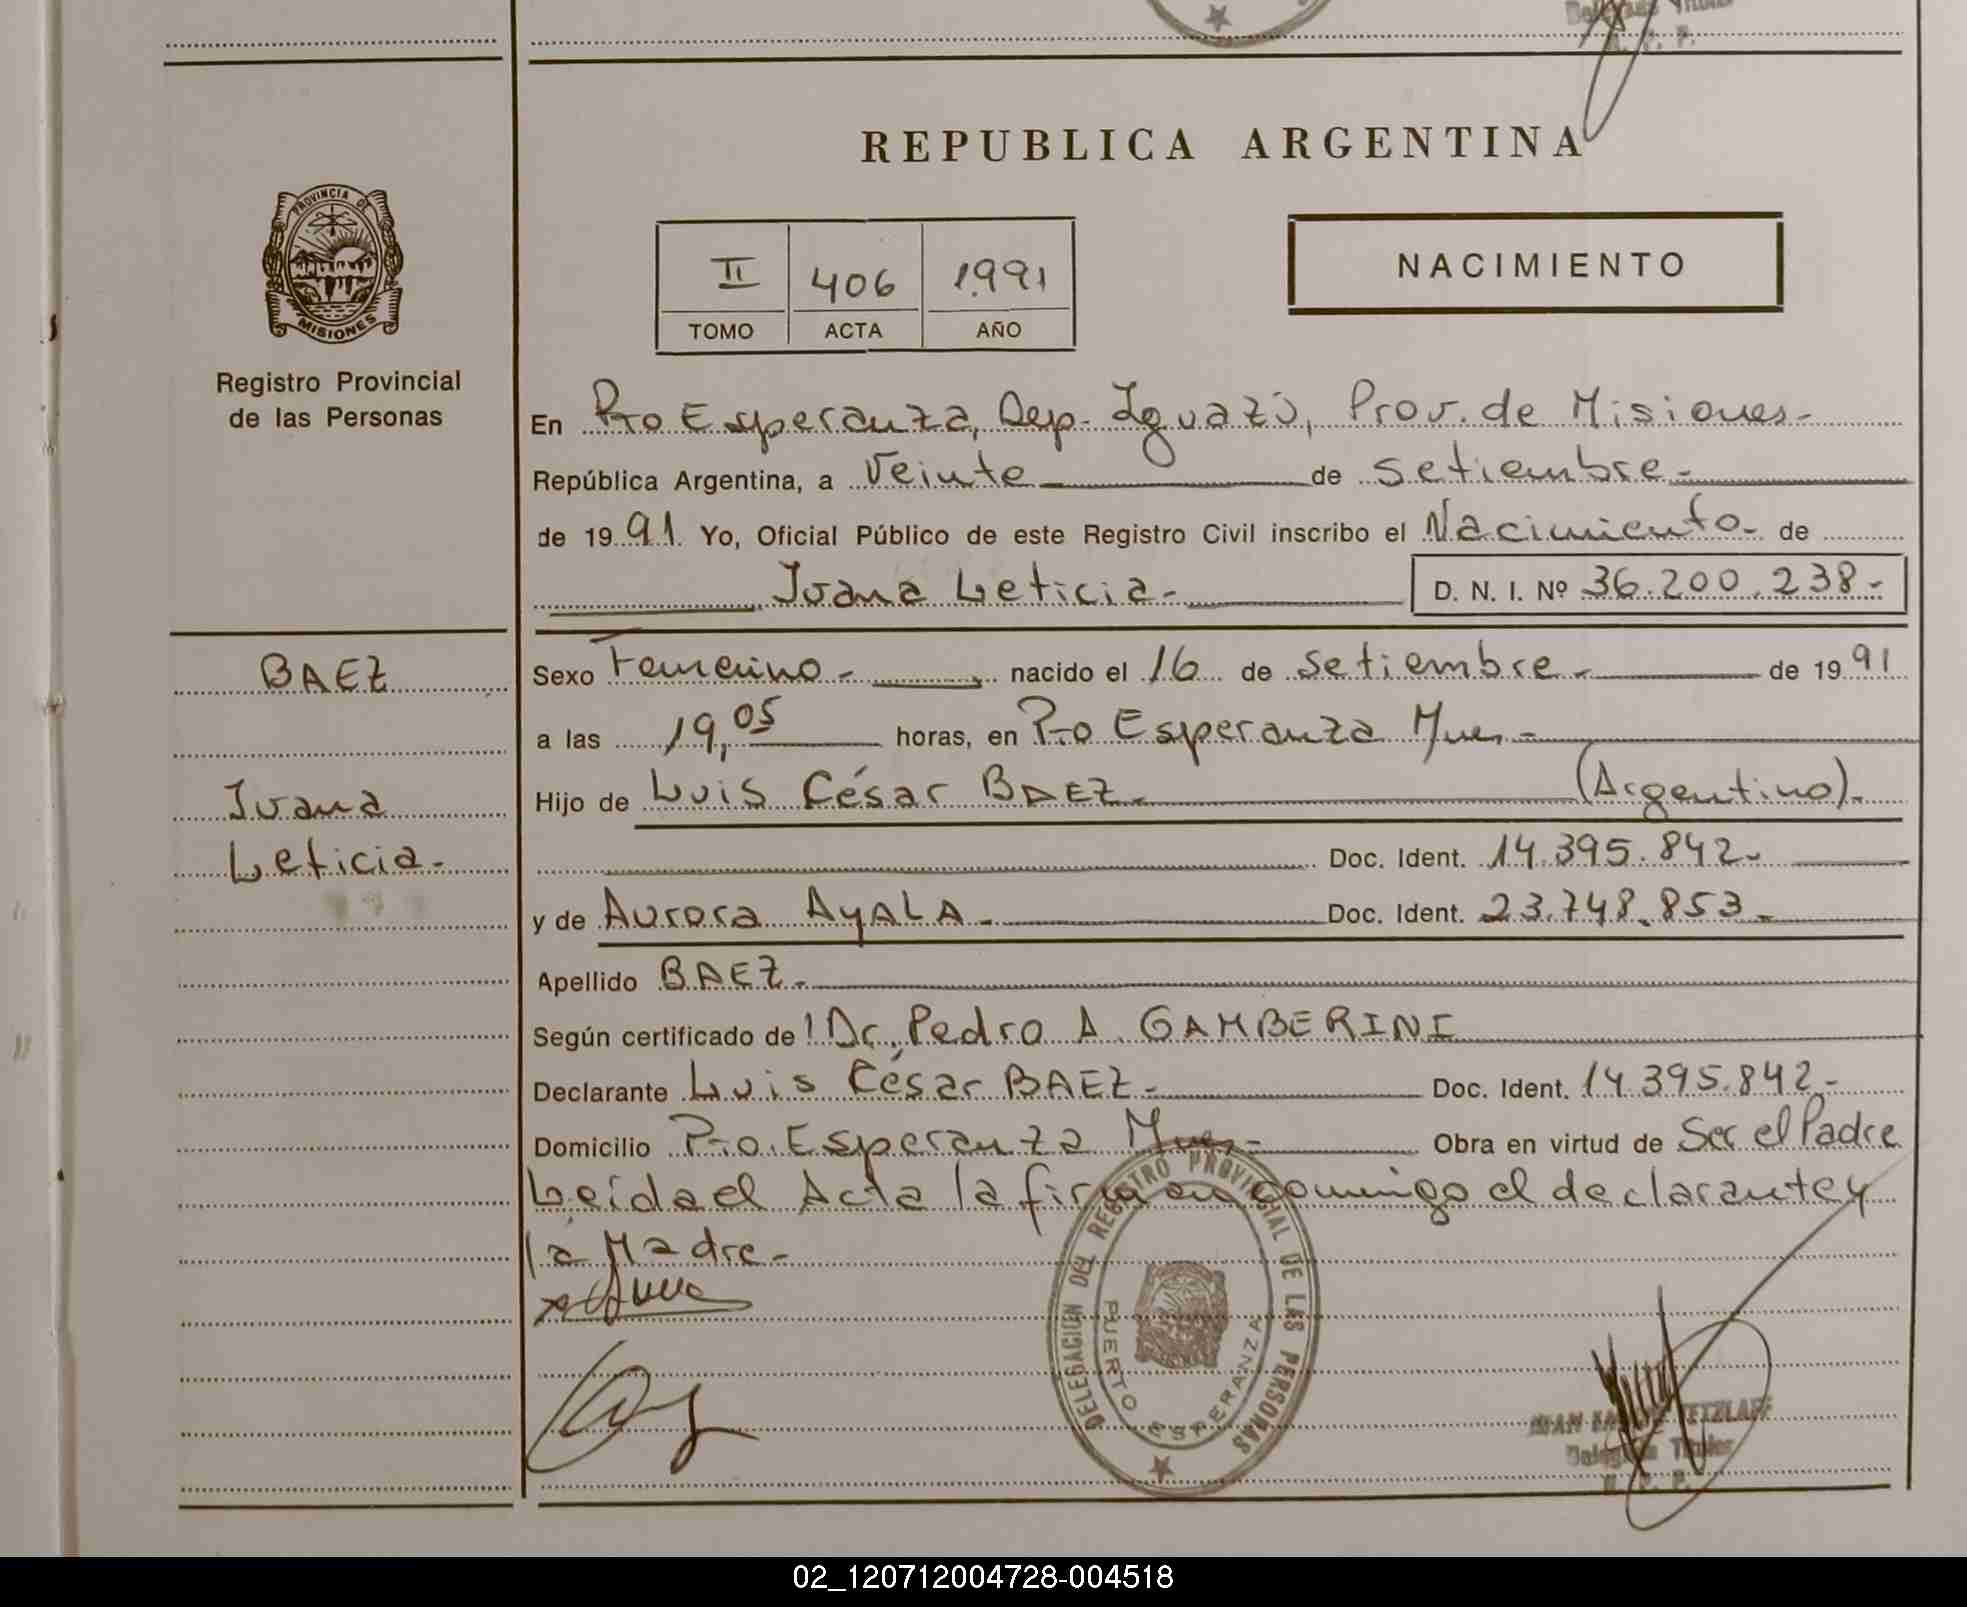 Delegado Titular
R. P. P.
REPUBLICA ARGENTINA
PROVINCIA DE
MISIONES
Registro Provincial
de las Personas
II 406 1991
TOMO ACTA AÑO
NACIMIENTO
En Pto Esperanza, Dep. Iguazú, Prov. de Misiones-
República Argentina, a Veinte de Setiembre-
de 1991. Yo, Oficial Público de este Registro Civil inscribo el Nacimiento- de
Juana Leticia- D. N. I. Nº 36.200.238-
BAEZ
Juana
Leticia-
Sexo Femenino- nacido el 16 de Setiembre- de 1991
a las 19,05 horas, en Pto Esperanza Mnes-
Hijo de Luis César BAEZ- (Argentino)-
Doc. Ident. 14.395.842-
y de Aurora AyALA- Doc. Ident. 23.748.853-
Apellido BAEZ-
Según certificado de Dr. Pedro A. GAMBERINI
Declarante Luis César BAEZ- Doc. Ident. 14.395.842-
Domicilio Pto. Esperanza Mnes- Obra en virtud de Ser el Padre
Leída el Acta la firma conmigo el declarante y
la Madre-
DELEGACION DEL REGISTRO PROVINCIAL DE LAS PERSONAS
PUERTO ESPERANZA
JUAN TETZLAFF
Delegado Titular
R. P. P.
02_120712004728-004518